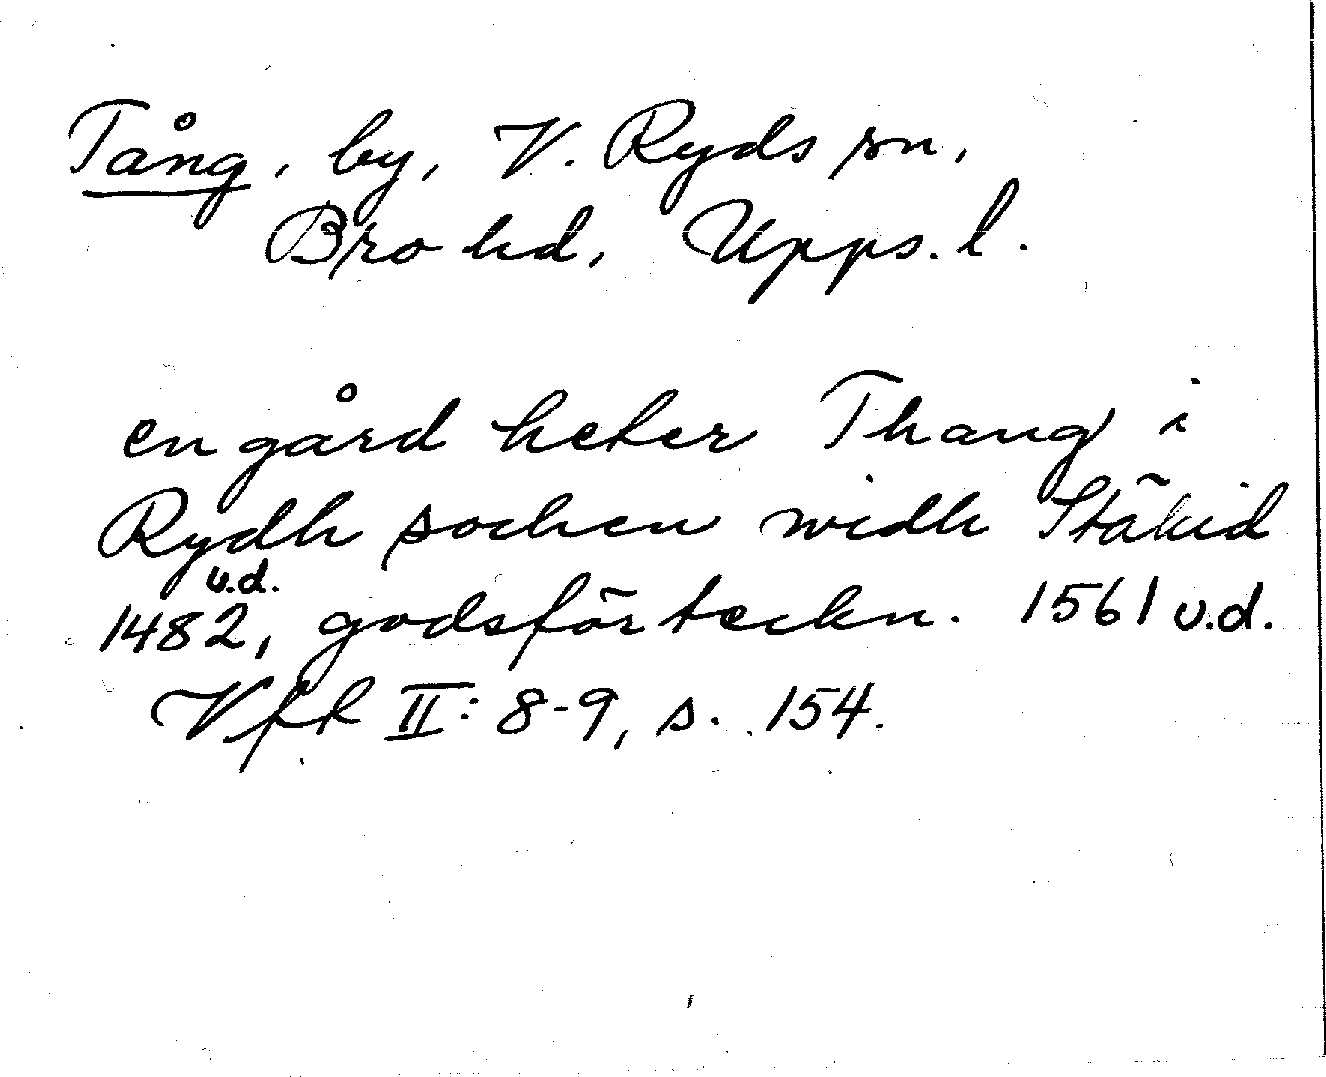 Tång, by, V. Ryds sn,
Bro hd, Upps. l.
en gård heter Thang i
Rydh sochen widh Stäkid
1482, u.d. godsförteckn. 1561 u.d.
Vfk II: 8-9, s. 154.